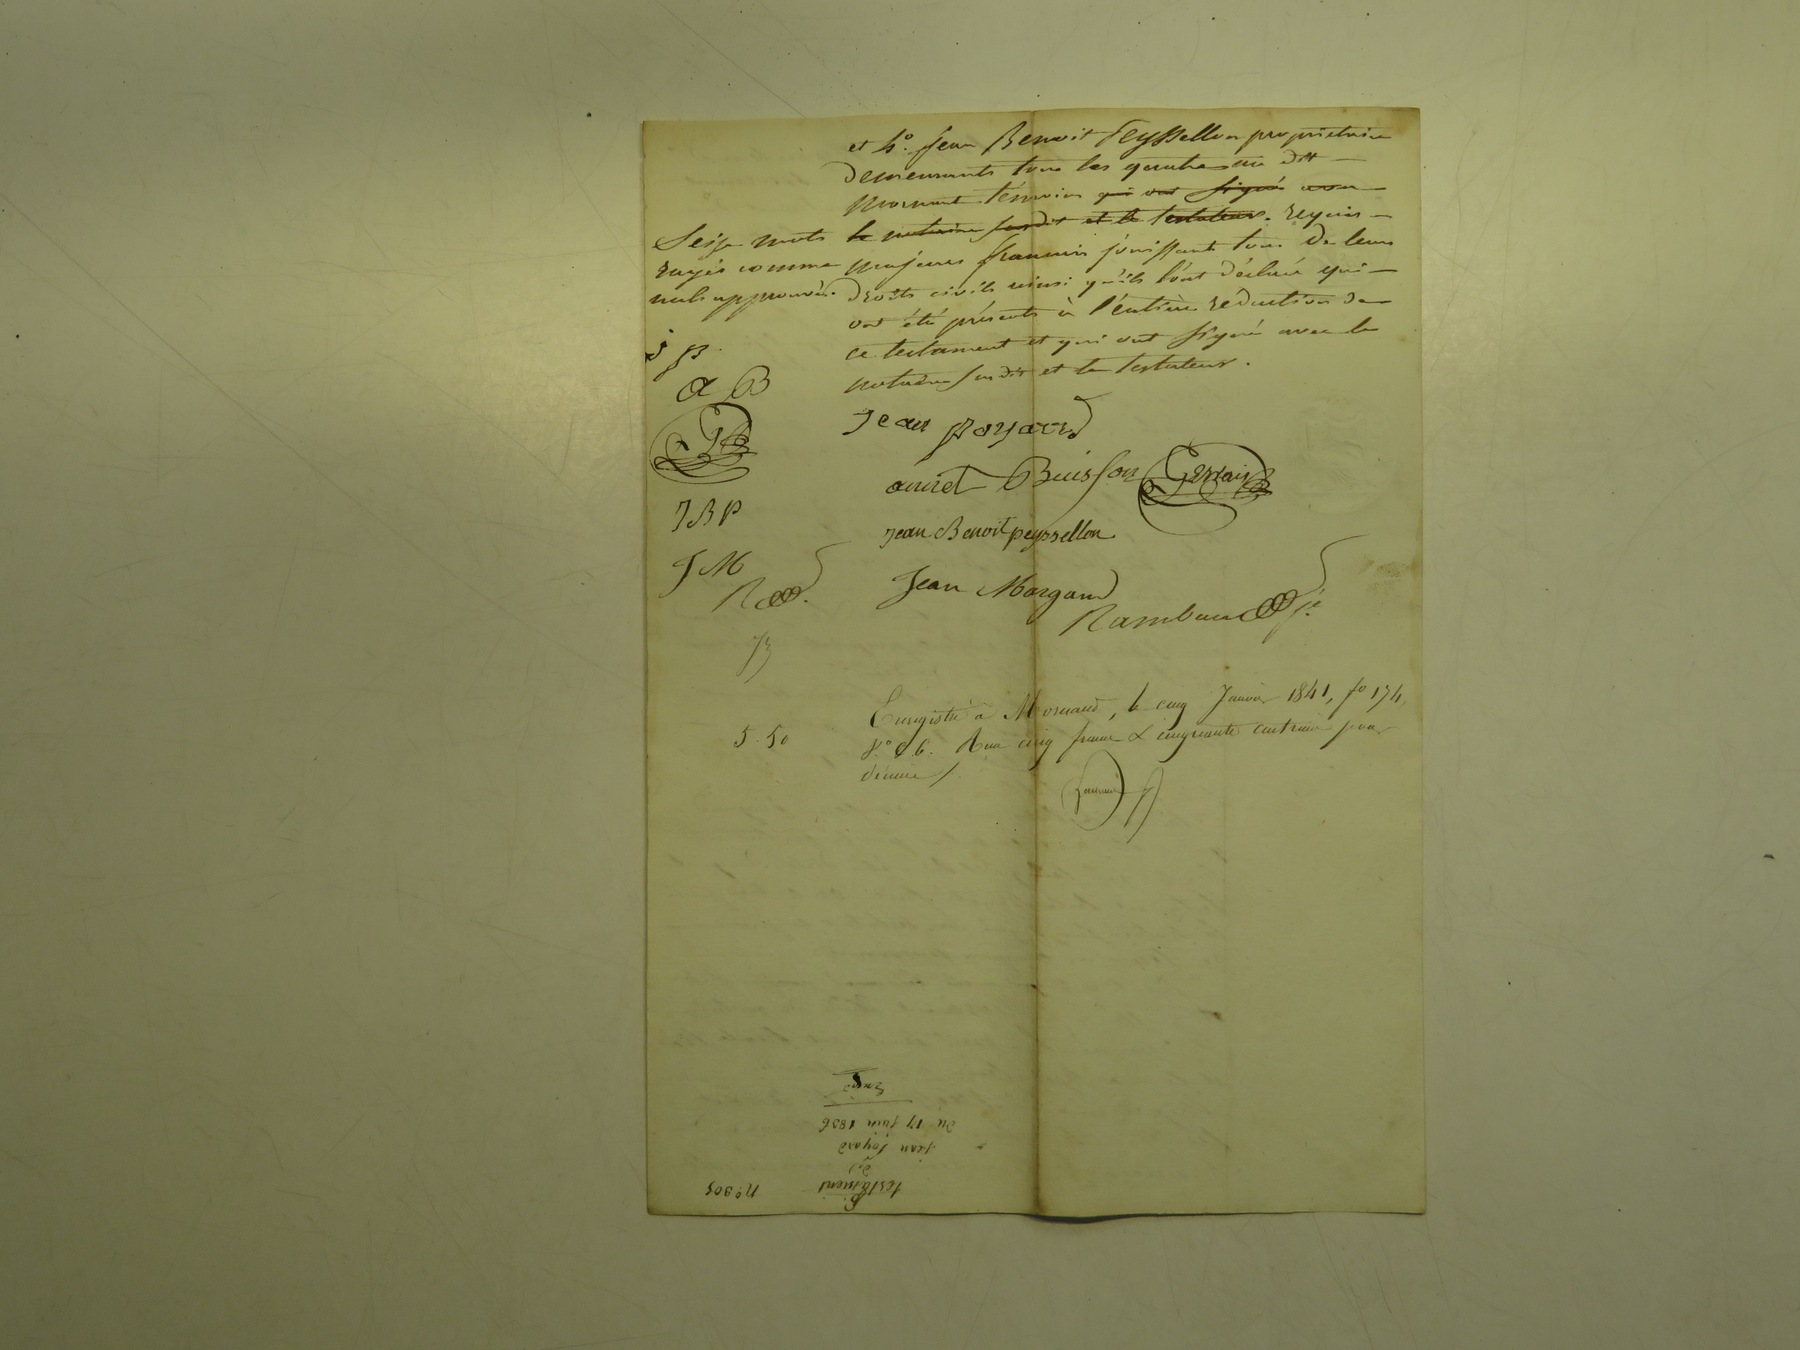 et 4o. Jean Benoit Peyssellon propriétaire
demeurants tous les quatre au dit
Mornant témoins qui ont signé avec
le notaire susdit et le testateur. requis
majeurs français jouissants tous de leurs
droits civils ainsi qu'ils l'ont déclaré qui
ont été présents à l'entière rédaction de
ce testament et qui ont signé avec le
notaire susdit et le testateur.
Seize mots
rayés comme
nuls approuvés.
J P
a B
G
J B P
J M
R
Jean poyard
annet Buisson Gervais
Jean Benoit peyssellon
Jean Margand
Rambaud
5.50
Enregistré à Mornand, le cinq Janvier 1841, fo 174,
Vo C 6. Reçu cinq francs & cinquante centimes pour
décime
No. 305
testament
de
jean poyard
du 17 juin 1836